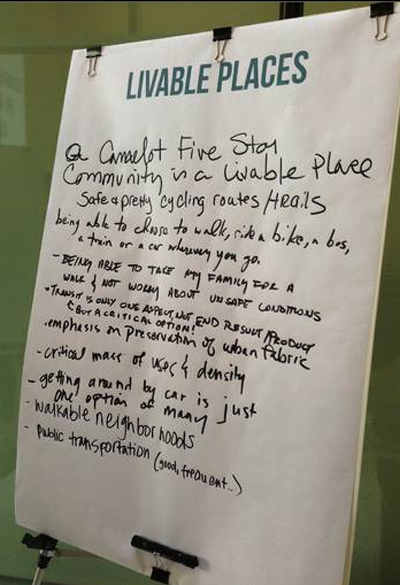 LIVABLE PLACES
a Camelot Five Star
Community is a Livable Place
Safe & pretty cycling routes/trails
being able to choose to walk, ride a bike, a bus,
a train or a car wherever you go.
- BEING ABLE TO TAKE MY FAMILY FOR A
WALK & NOT WORRY ABOUT UNSAFE CONDITIONS
- TRANSIT IS ONLY ONE ASPECT, NOT END RESULT/PRODUCT
& BUT A CRITICAL OPTION!
- emphasis on preservation of urban fabric
- critical mass of uses & density
- getting around by car is just
one option of many
- walkable neighborhoods
- Public transportation (good, frequent..)